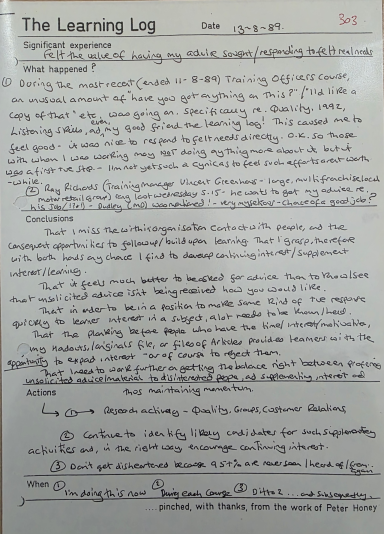 The Learning Log Date 13-8-89. 303
Significant experience
Felt the value of having my advice sought/responding to felt real needs
What happened?
① During the most recent (ended 11-8-89) Training Officers Course,
an unusual amount of 'have you got anything on this?'/'I'd like a
copy of that' etc, was going on. Specifically re. Quality, 1992,
Listening Skills, and, even, my good friend the learning log! This caused me to
feel good - it was nice to respond to felt needs directly. O.K. so those
with whom I was working may NOT doing anything more about it, but it
was a first +ve step - I'm not yet such a cynic as to feel such efforts aren't worth
-while.
② Ray Richards (Training manager Vincent Greenhous - large, multifranchise local
motor retail group) rang last wednesday 5.15 - he wanted to get my advice re.
his job/role - Dudley (MD) was mentioned! - very
Conclusions
That I miss the within organisation contact with people, and the
consequent opportunities to follow up/build upon learning. That I grasp, therefore
with both hands any chance I find to develop continuing interest/supplement
interest/learning.
That it feels much better to be asked for advice than to know/see
that unsolicited advice isn't being received how you would like.
That in order to be in a position to make some kind of +ve response
quickly to learner interest in a subject, a lot needs to be known/held.
That the planking before people who have the time/interest/motivation,
my handouts/originals file, or files of Articles provides learners with the
opportunity to expand interest - or of course to reject them.
That I need to work further on getting the balance right between proffering
unsolicited advice/material to disinterested people, and supplementing interest and
thus maintaining momentum.
Actions
① Research actively - Quality, Groups, Customer Relations
② Continue to identify likely candidates for such supplementary
activities and, in the right way, encourage continuing interest.
③ Don't get disheartened because 95+% are never seen/heard of/from
again
When ① I'm doing this now ② During each course ③ Ditto 2 ... and subsequently.
.....pinched, with thanks, from the work of Peter Honey